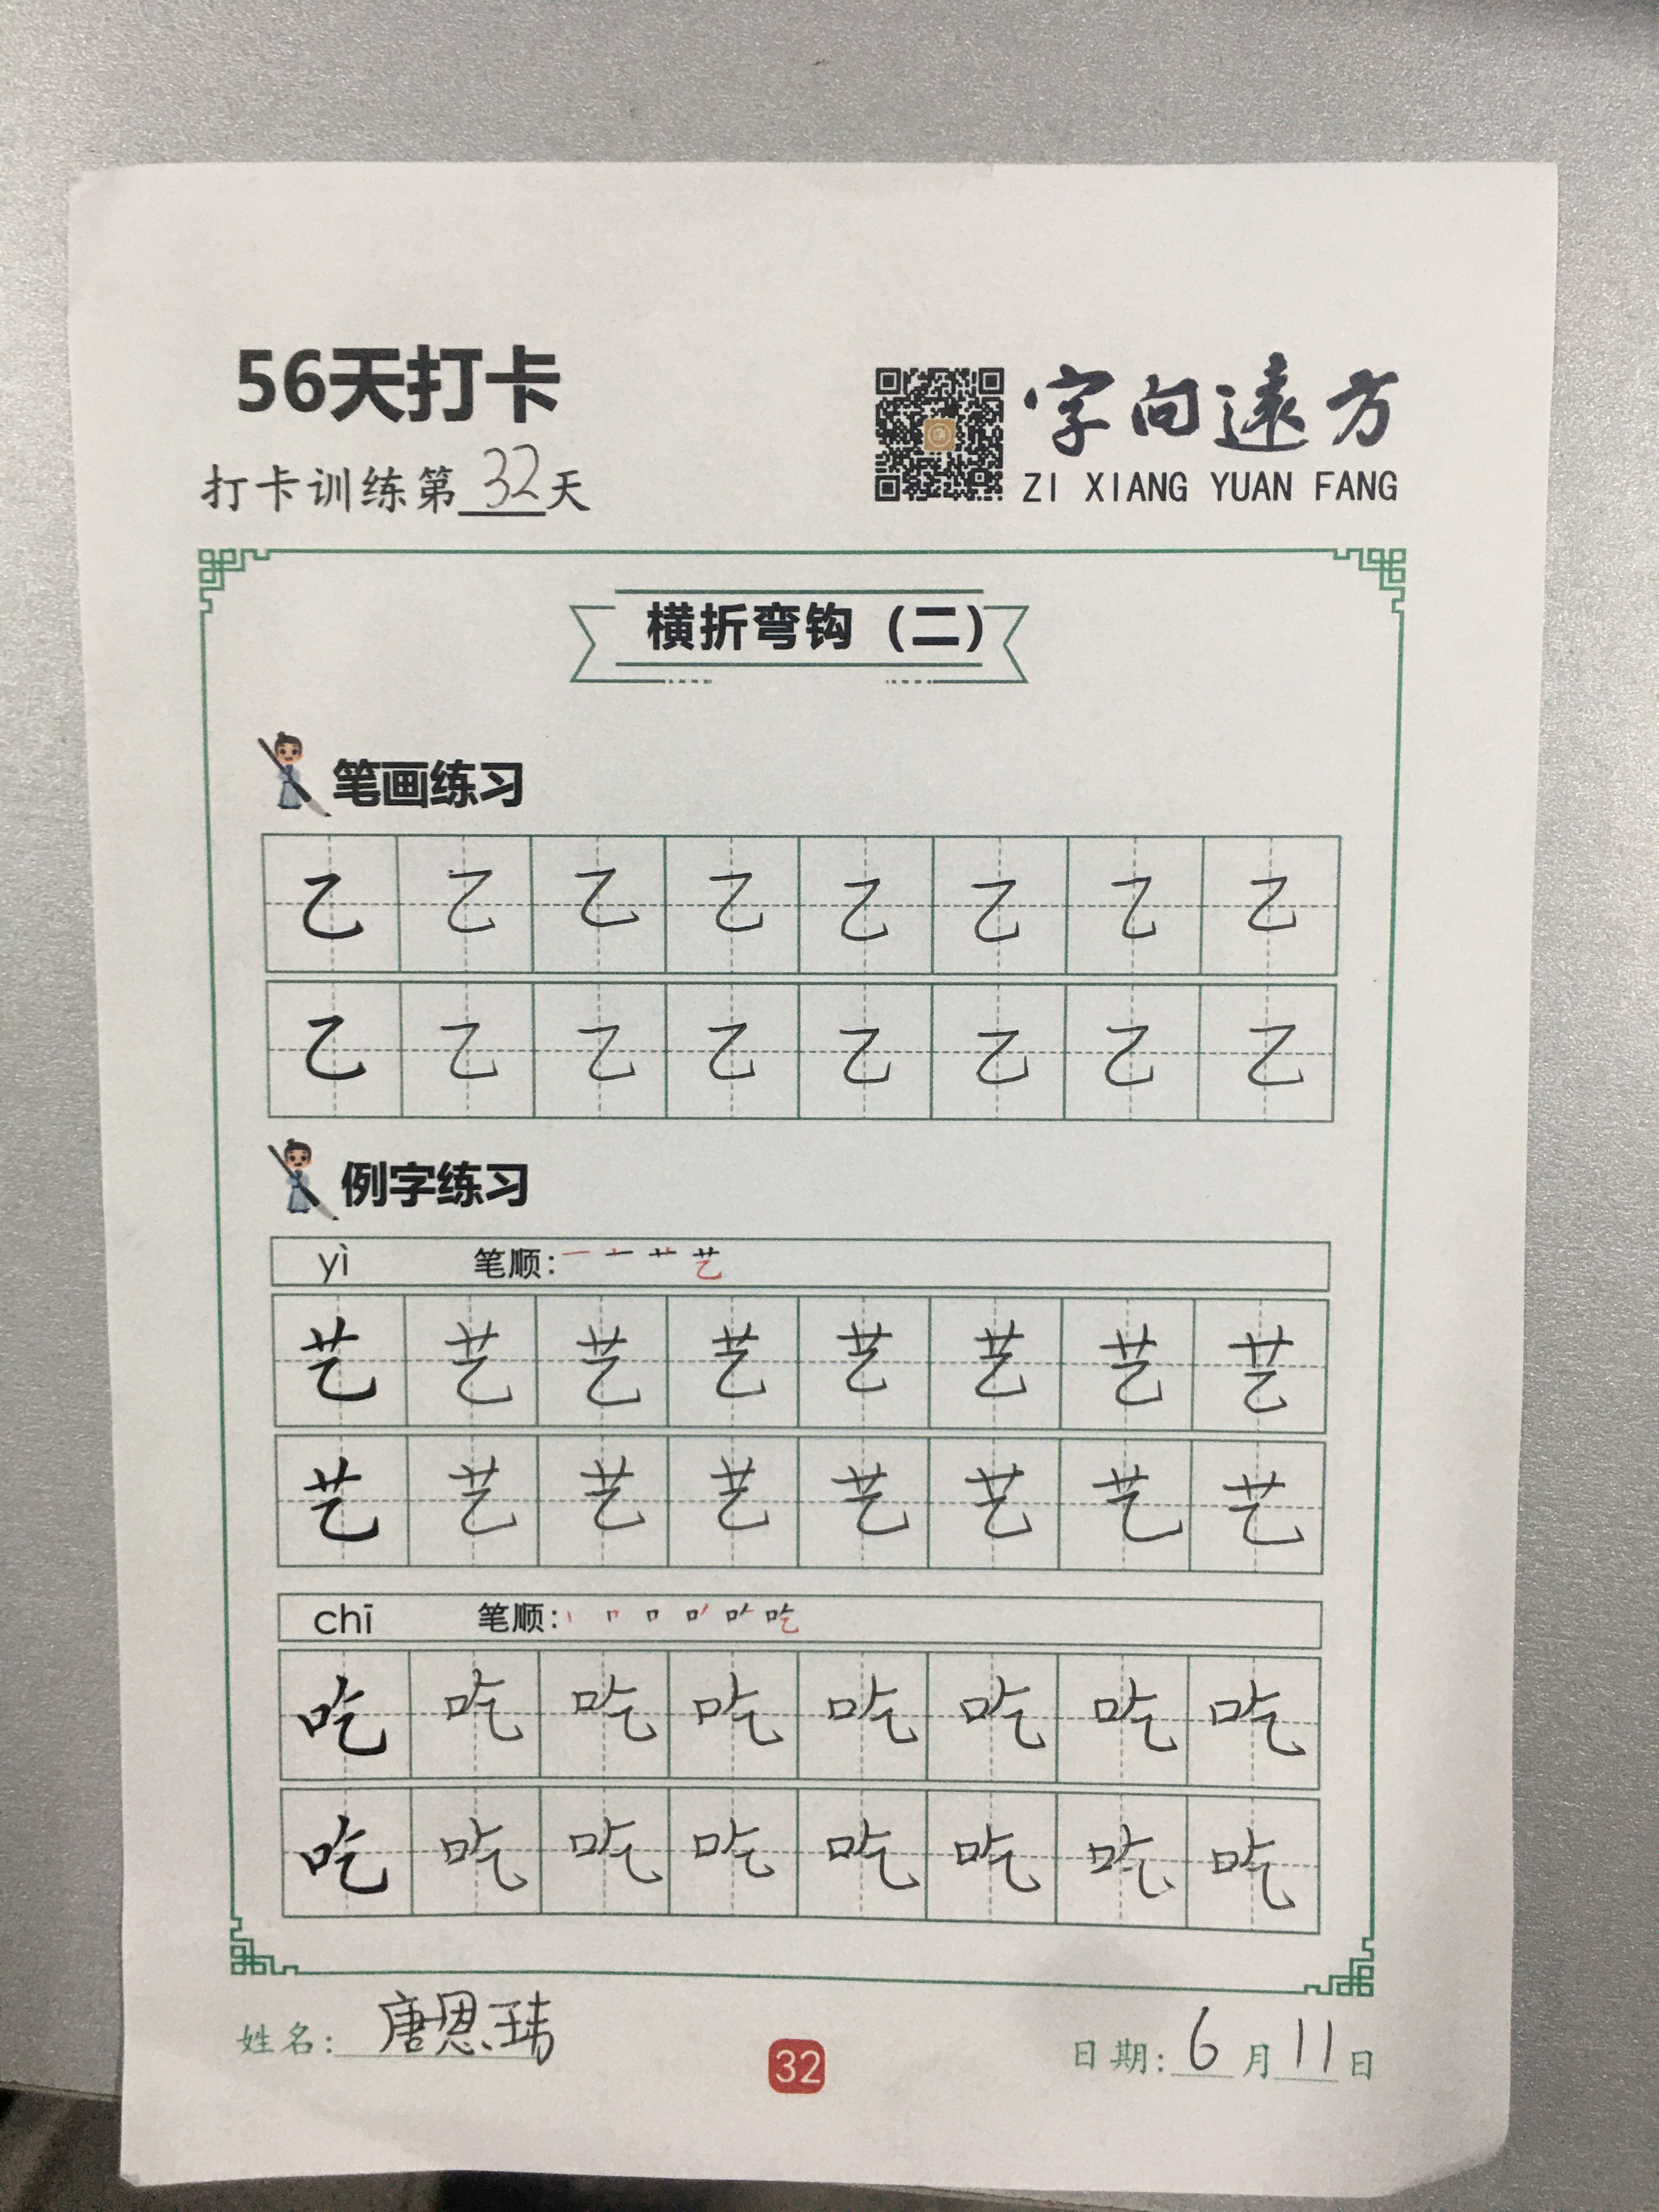 56天打卡
打卡训练第32天
字向遠方
ZI XIANG YUAN FANG
横折弯钩（二）
笔画练习
乙 乙 乙 乙 乙 乙 乙 乙
乙 乙 乙 乙 乙 乙 乙 乙
例字练习
yì 笔顺： 一 十 艹 艺
艺 艺 艺 艺 艺 艺 艺 艺
艺 艺 艺 艺 艺 艺 艺 艺
chī 笔顺： 丨 冂 口 口丿 口𠂉 吃
吃 吃 吃 吃 吃 吃 吃 吃
吃 吃 吃 吃 吃 吃 吃 吃
姓名：唐恩玮
32
日期：6月11日